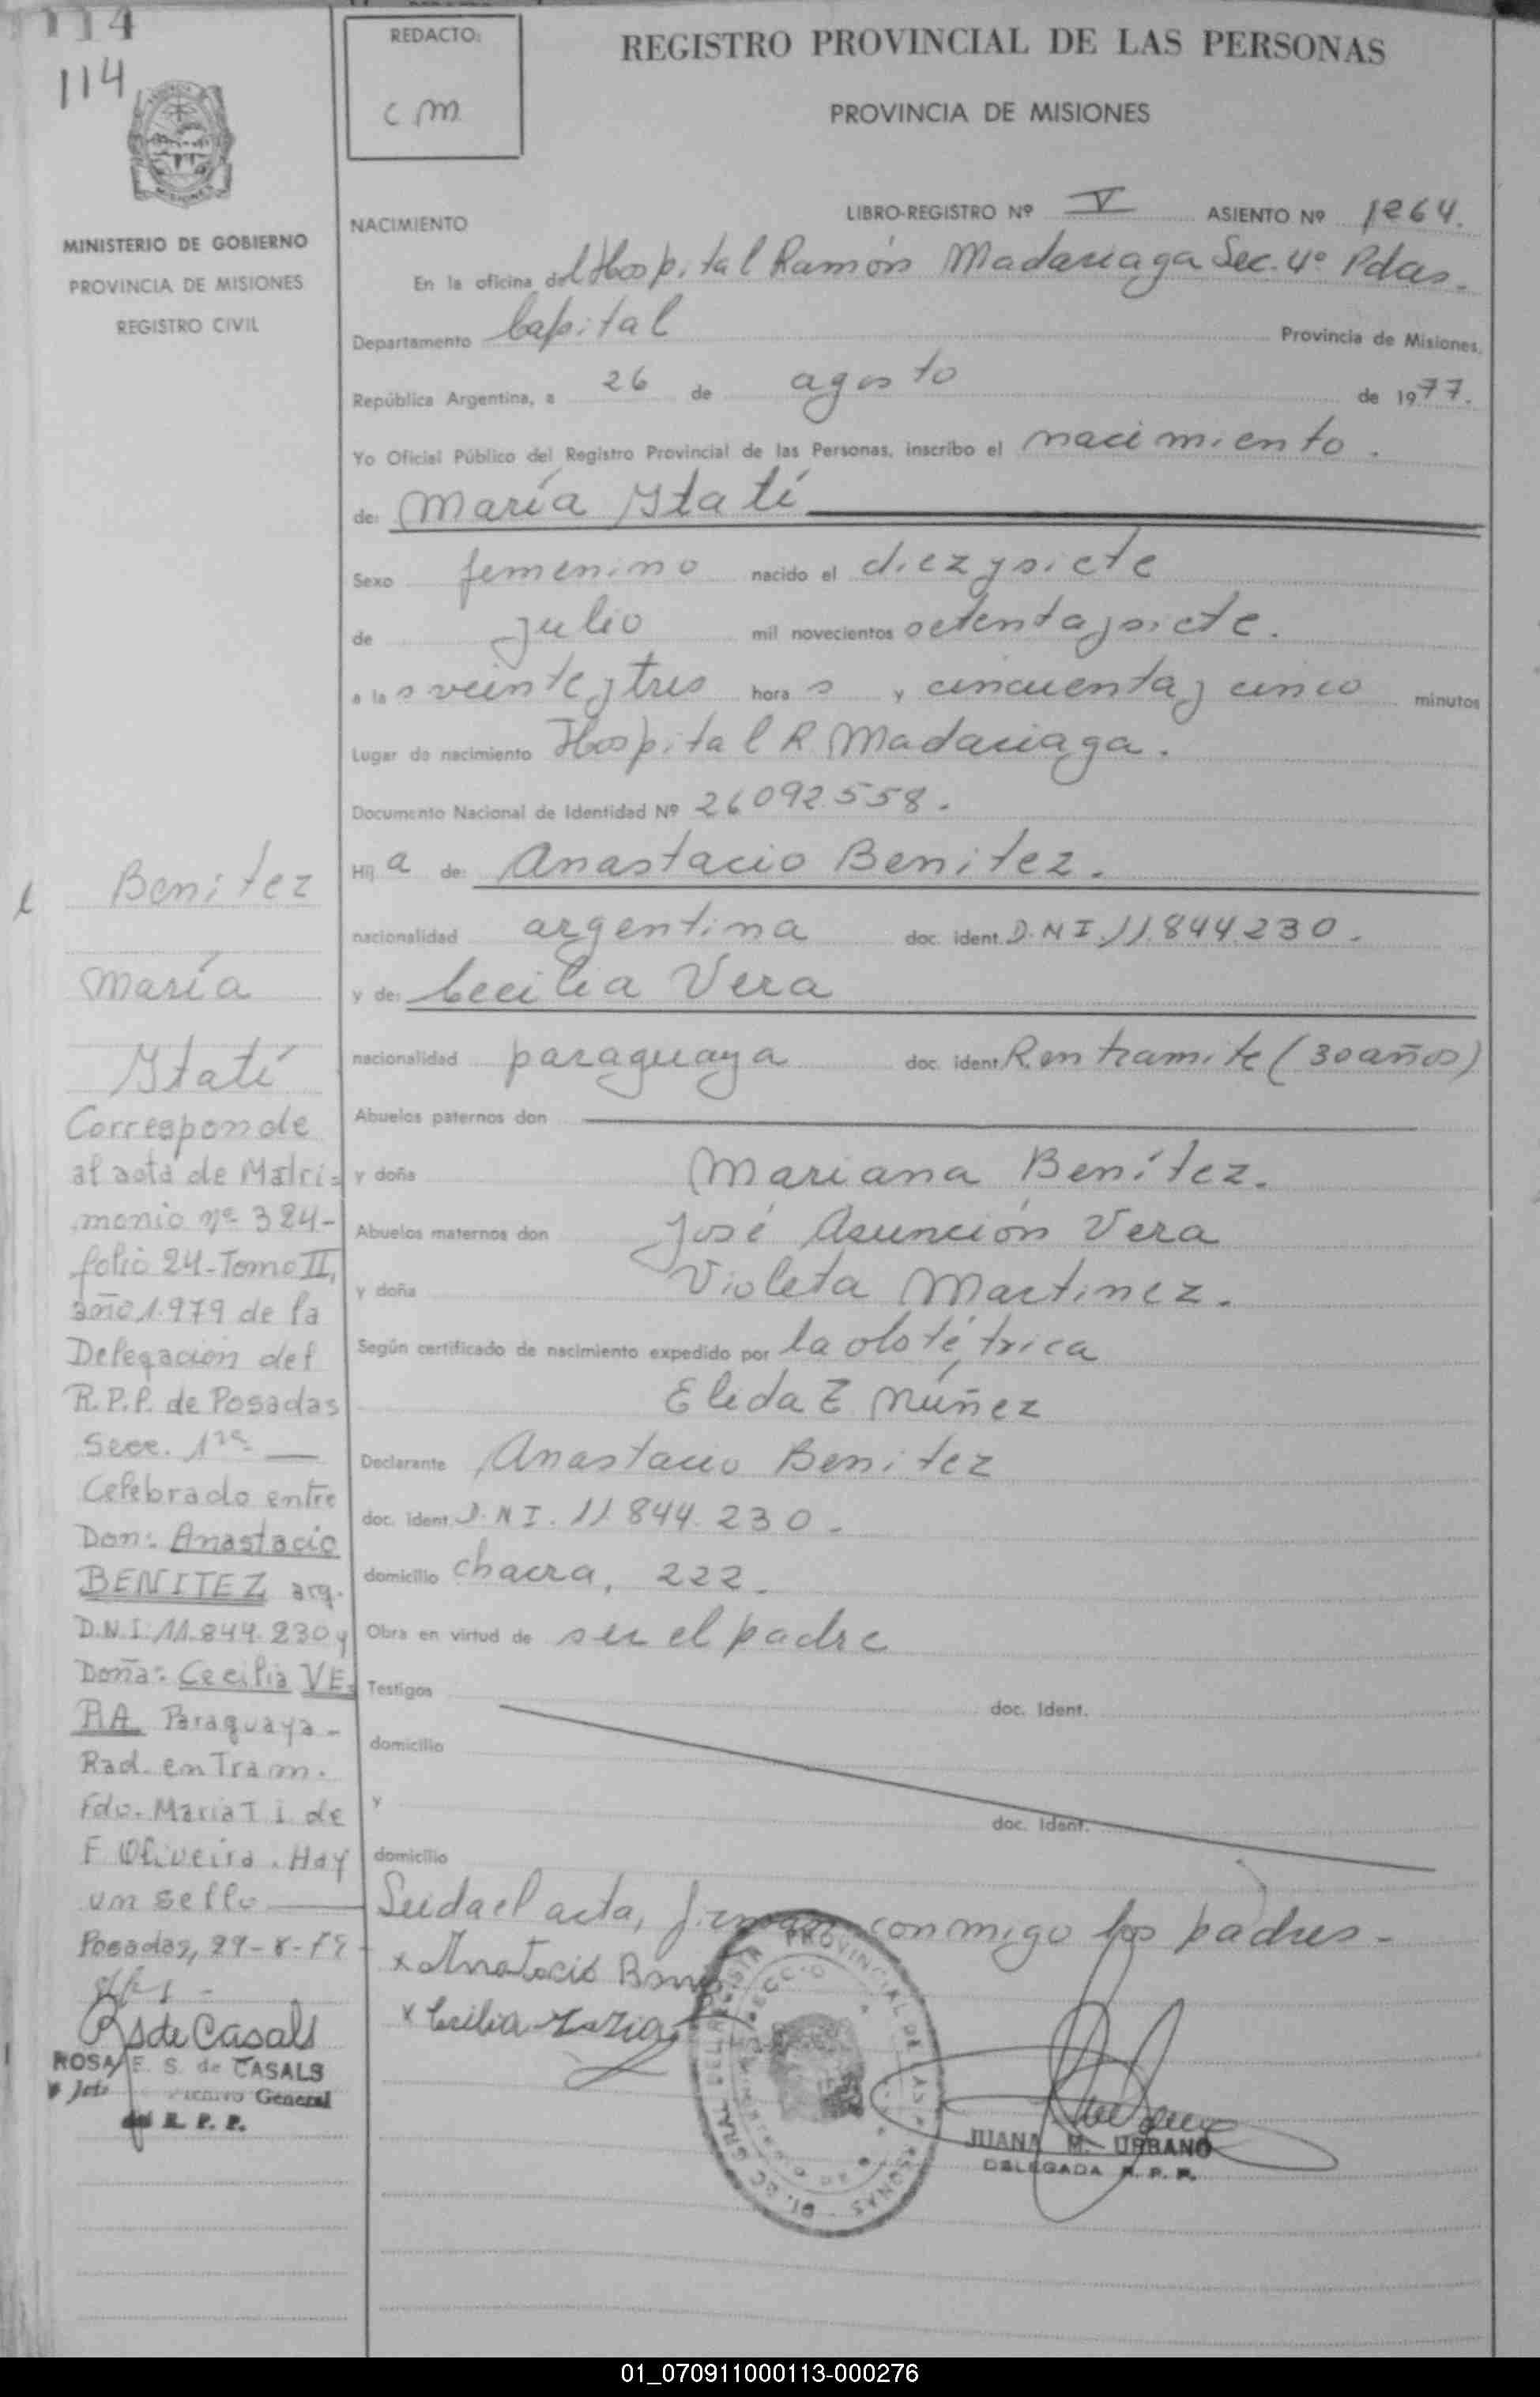 114
114
REDACTO:
C M
REGISTRO PROVINCIAL DE LAS PERSONAS
PROVINCIA DE MISIONES
MISIONES
MINISTERIO DE GOBIERNO
PROVINCIA DE MISIONES
REGISTRO CIVIL
NACIMIENTO
LIBRO-REGISTRO Nº V ASIENTO Nº 1264.
En la oficina del Hospital Ramón Madariaga Sec. 4º Pdas.
Departamento Capital Provincia de Misiones,
República Argentina, a 26 de agosto de 1977.
Yo Oficial Público del Registro Provincial de las Personas, inscribo el nacimiento.
de: María Itatí
Sexo femenino nacido el diezysiete
de julio mil novecientos setentaysiete.
a las veinteytres horas y cincuentay cinco minutos
Lugar de nacimiento Hospital R. Madariaga.
Documento Nacional de Identidad Nº 26092.558.
Hija de: Anastacio Benitez.
nacionalidad argentina doc. ident. D.N.I. 11.844.230.
y de: Cecilia Vera
nacionalidad paraguaya doc. ident. R. en tramite (30 años)
Abuelos paternos don
y doña Mariana Benítez.
Abuelos maternos don José Asunción Vera
y doña Violeta Martinez.
Según certificado de nacimiento expedido por la obstétrica
Elida E. Núñez
Declarante Anastacio Benitez
doc. ident. D.N.I. 11.844.230.
domicilio chacra, 222.
Obra en virtud de ser el padre
Testigos doc. Ident.
domicilio
y doc. Ident.
domicilio
Leida el acta, firman conmigo los padres.
x Anastacio
x Cecilia
JUANA M. URBANO
DELEGADA R. P. P.
Benitez
María
Itatí
Corresponde
al acta de Matri-
monio nº 324-
folio 24-Tomo II,
año 1.979 de la
Delegación del
R.P.P. de Posadas
Secc. 1ra
Celebrado entre
Don: Anastacio
BENITEZ arg.
D.N.I. 11.844.230 y
Doña: Cecilia VE-
RA Paraguaya-
Rad. en Tram.
Fdo. Maria T. i. de
F. Oliveira. Hay
un sello
Posadas, 29-8-79
RSdeCasals
ROSA E. S. de CASALS
Jefe Archivo General
del R. P. P.
01_070911000113-000276